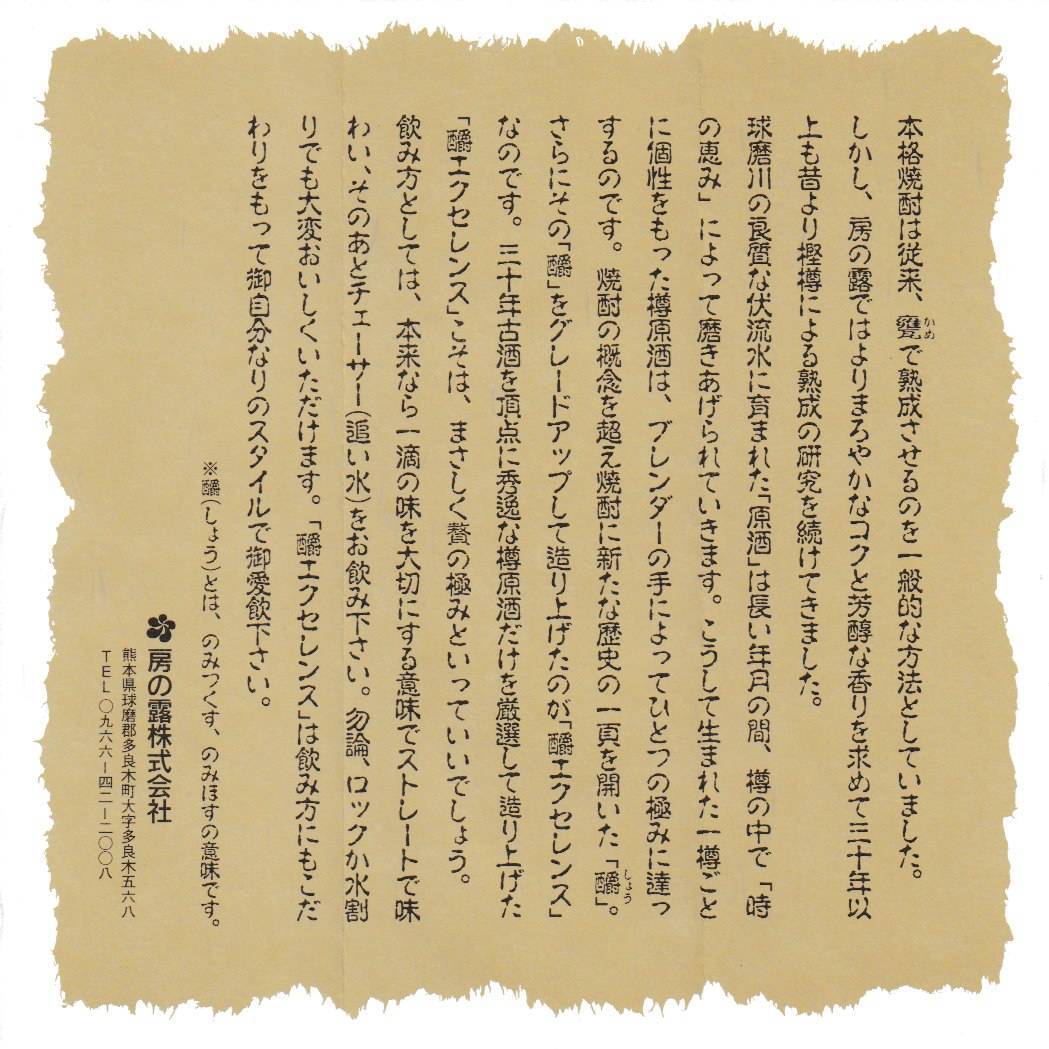 本格焼酎は従来、甕で熟成させるのを一般的な方法としていました。
かめ
しかし、房の露ではよりまろやかなコクと芳醇な香りを求めて三十年以
上も昔より樫樽による熟成の研究を続けてきました。
球磨川の良質な伏流水に育まれた「原酒」は長い年月の間、樽の中で「時
の恵み」によって磨きあげられていきます。こうして生まれた一樽ごと
に個性をもった樽原酒は、ブレンダーの手によってひとつの極みに達っ
するのです。焼酎の概念を超え焼酎に新たな歴史の一頁を開いた「釂」。
しょう
さらにその「釂」をグレードアップして造り上げたのが「釂エクセレンス」
なのです。三十年古酒を頂点に秀逸な樽原酒だけを厳選して造り上げた
「釂エクセレンス」こそは、まさしく贅の極みといっていいでしょう。
飲み方としては、本来なら一滴の味を大切にする意味でストレートで味
わい、そのあとチェーサー(追い水)をお飲み下さい。勿論、ロックか水割
りでも大変おいしくいただけます。「釂エクセレンス」は飲み方にもこだ
わりをもって御自分なりのスタイルで御愛飲下さい。
※釂(しょう)とは、のみつくす、のみほすの意味です。
房の露株式会社
熊本県球磨郡多良木町大字多良木五六八
TEL〇九六六ー四二ー二〇〇八